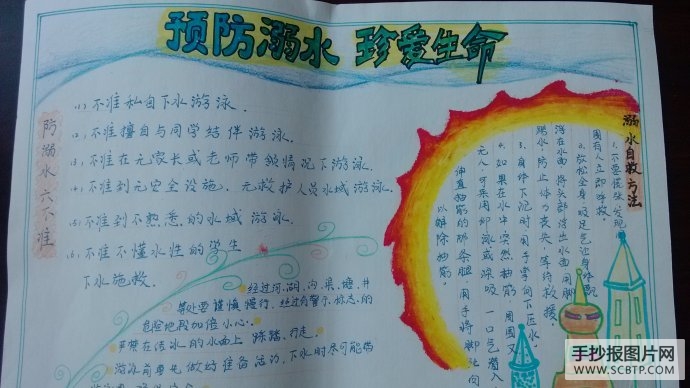 预防溺水 珍爱生命
防溺水六不准
(1)不准私自下水游泳.
(2)不准擅自与同学结伴游泳.
(3)不准在无家长或老师带领情况下游泳.
(4)不准到无安全设施、无救护人员水域游泳.
(5)不准到不熟悉的水域游泳.
(6)不准不懂水性的学生
下水施救.
经过河、湖、沟、渠、塘、井
等处要谨慎慢行,经过有警示标志的
危险地段加倍小心.
严禁在结冰的水面上踩踏、行走.
游泳前要先做好准备活动,下水时尽可能
溺水自救方法
1.不要慌张,发现
周围有人立即呼救。
2.放松全身,
浮在水面,将头部浮出水面,用脚
踢水,防止体力丧失,等待救援。
3.身体下沉时,用手掌向下压水
4.如果在水中突然抽筋,
无人,
伸直抽筋的那条腿,用手将脚
以解除抽筋。
手抄报图片网
WWW.SCBTP.COM